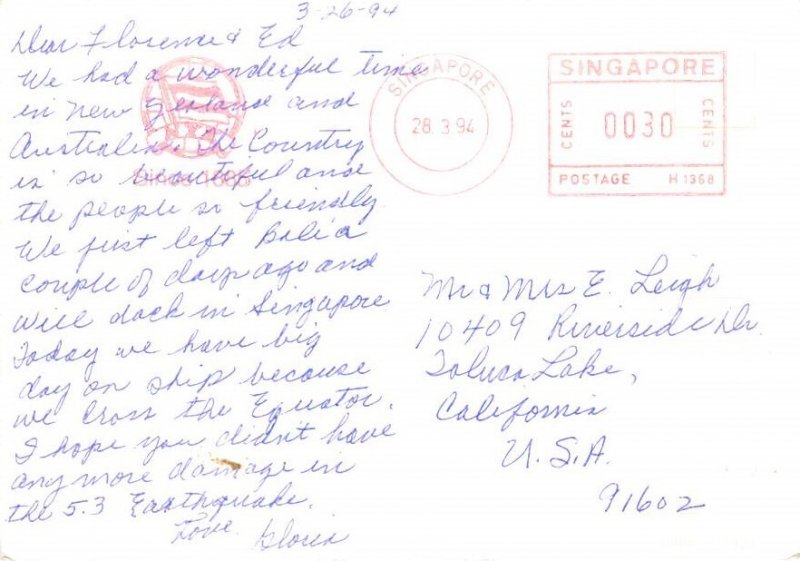 3-26-94
Dear Florence & Ed
We had a wonderful time
in New Zealand and
Australia. The Country
is so beautiful and
the people so friendly
We just left Bali a
couple of days ago and
will dock in Singapore
Today we have big
day on ship because
we cross the Equator.
I hope you didn't have
any more damage in
the 5.3 Earthquake.
Love
Gloria
SINGAPORE
28.3.94
SINGAPORE
CENTS
0030
CENTS
POSTAGE H1368
Mr & Mrs E. Leigh
10409 Riverside Dr.
Toluca Lake,
California
U.S.A.
91602